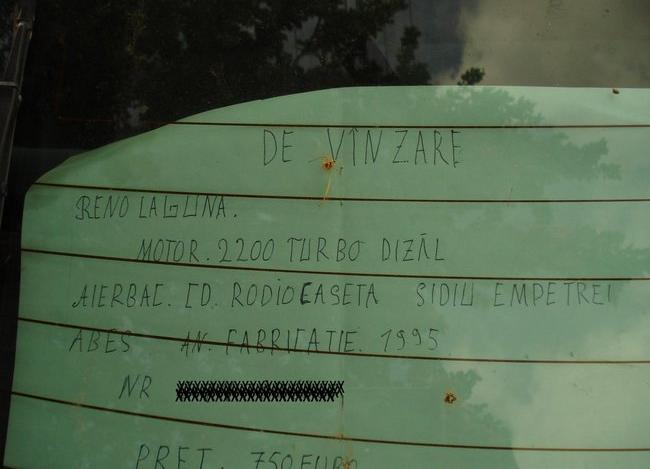 DE VÎNZARE
RENO LAGUNA.
MOTOR. 2200 TURBO DIZĂL
AIERBAC. CD. RODIOCASETA SIDIU EMPETREI
ABES AN. FABRICATIE. 1995
NR
PRET. 750 EURO